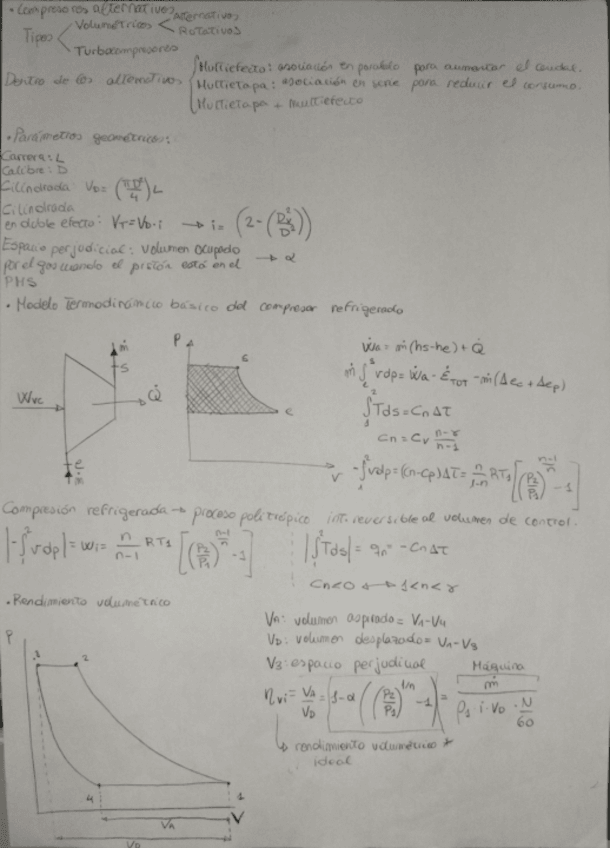 • Compresores alternativos
Tipos
Volumétricos
Alternativos
Rotativos
Turbocompresores
Dentro de los alternativos
Multiefecto: asociación en paralelo para aumentar el caudal.
Multietapa: asociación en serie para reducir el consumo.
Multietapa + multiefecto
• Parámetros geométricos:
Carrera: L
Calibre: D
Cilindrada: V_D = (πD²/4) L
Cilindrada
en doble efecto: V_T = V_D · i → i = (2 - (D_v²/D²))
Espacio perjudicial: volumen ocupado
por el gas cuando el pistón está en el → α
PMS
• Modelo Termodinámico básico del compresor refrigerado
ṁ
s
Ẇvc
Q̇
e
ṁ
P
s
e
v
Ẇa = ṁ(hs-he) + Q̇
ṁ∫vdp = Ẇa - Ė_TOT - ṁ(Δec + Δep)
∫Tds = Cn ΔT
Cn = Cv (n-γ)/(n-1)
-∫vdp = (Cn-Cp)ΔT = n/(1-n) RT1 [(P2/P1)^((n-1)/n) - 1]
Compresión refrigerada → proceso politrópico int. reversible al volumen de control.
|-∫vdp| = Wi = n/(n-1) RT1 [(P2/P1)^((n-1)/n) - 1]
|∫Tds| = qn = -Cn ΔT
Cn<0 ↔ 1<n<γ
• Rendimiento volumétrico
P
3
2
4
1
V
VA
VD
VA: volumen aspirado = V1-V4
VD: volumen desplazado = V1-V3
V3: espacio perjudicial
Máquina
ηvi = VA/VD = 1-α((P2/P1)^(1/n) - 1) = ṁ/(ρ1 · i · VD · N/60)
↳ rendimiento volumétrico
ideal